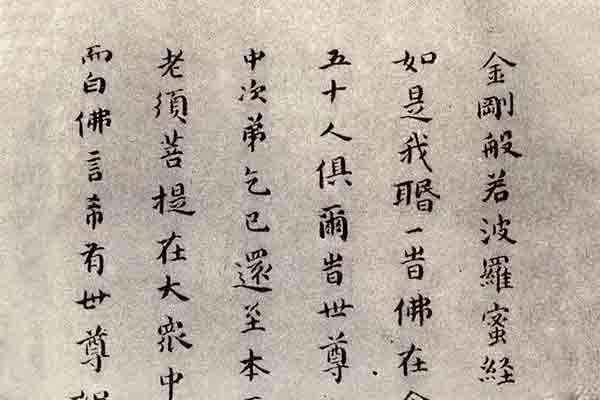 金剛般若波羅蜜経
如是我䎽一旹佛在
五十人俱爾旹世尊
中次弟乞已還至本
老須菩提在大眾中
而白佛言希有世尊